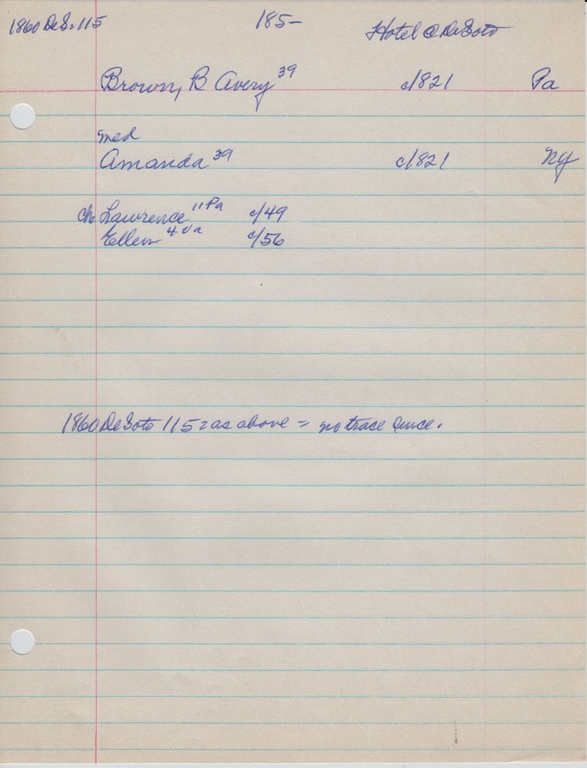 1860 DeS. 115 185- Hotel @ DeSoto
Brown, B Avery 39 c/1821 Pa
med
Amanda 39 c/1821 NY
ch Lawrence 11 Pa c/49
Ellen 4 Va c/56
1860 DeSoto 115 = as above = no trace since.